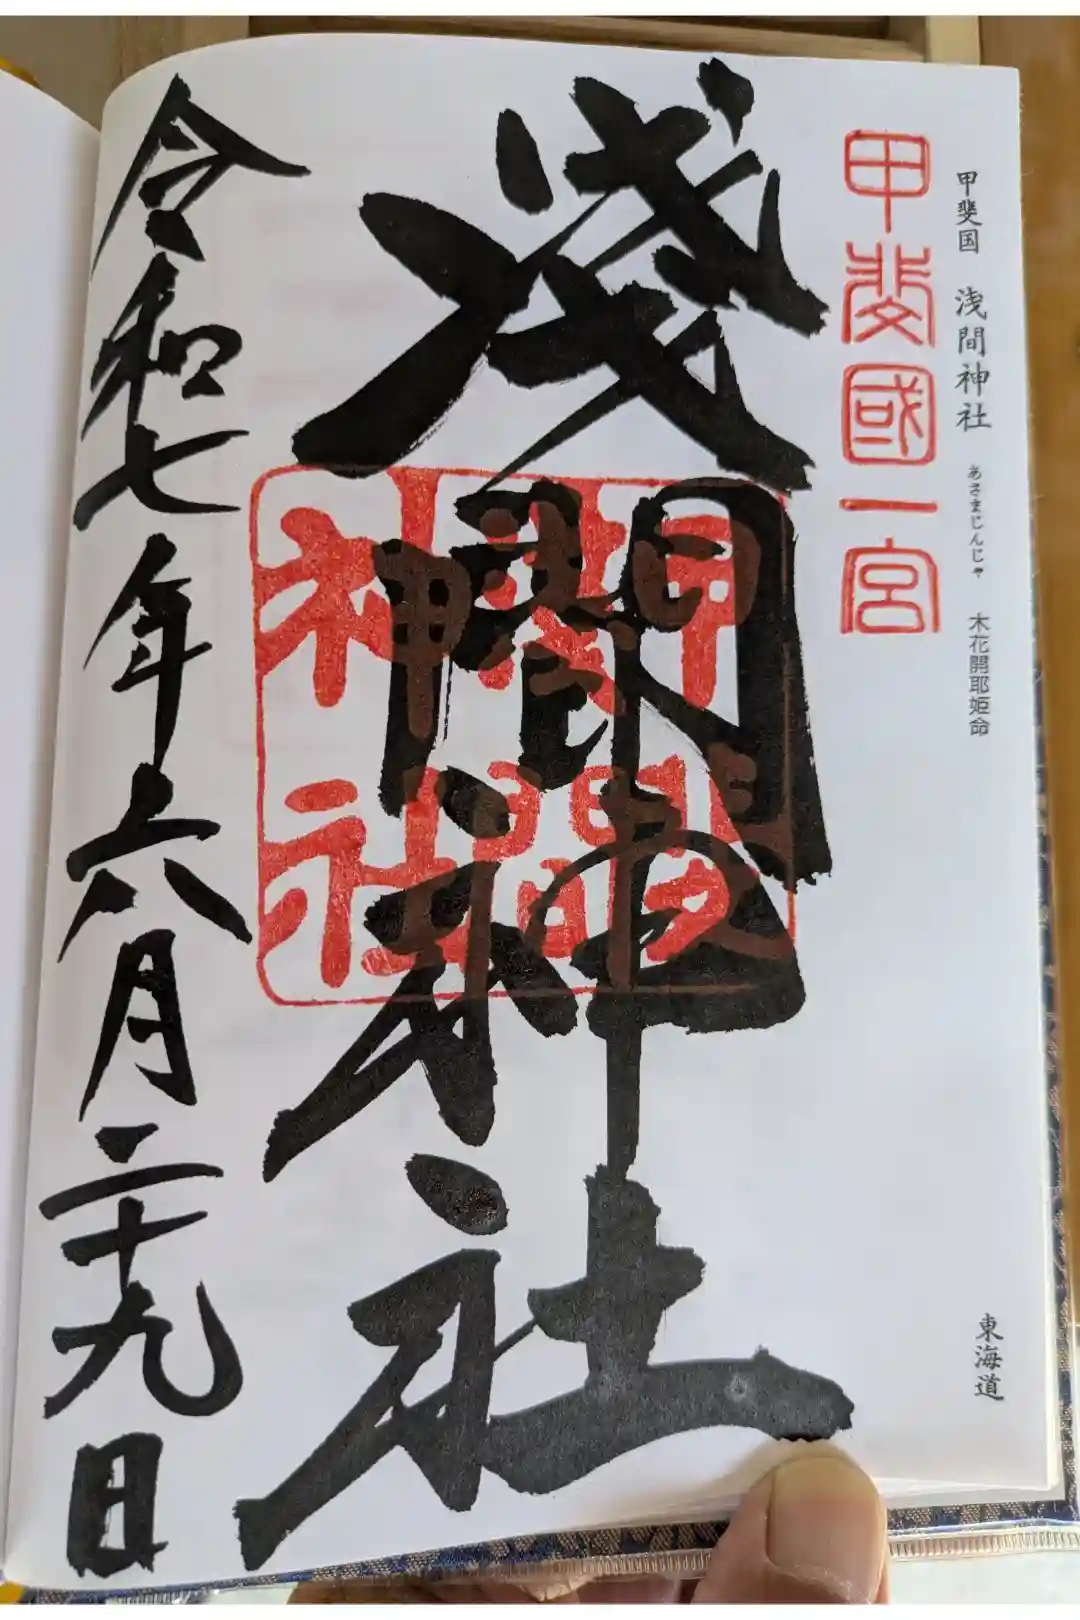 甲斐国 浅間神社 あさまじんじゃ 木花開耶姫命
東海道
甲斐國一宮
淺間神社
甲斐國
淺間
神社
令和七年六月二十九日